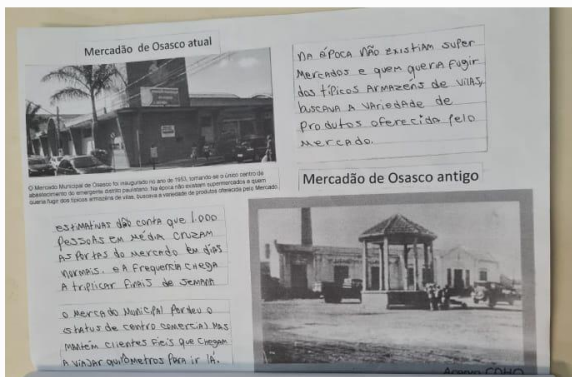 Mercadão de Osasco atual
O Mercado Municipal de Osasco foi inaugurado no ano de 1953, tornando-se o único centro de
abastecimento do emergente distrito paulistano. Na época não existiam supermercados e quem
queria fugir dos típicos armazéns de vilas, buscava a variedade de produtos oferecida pelo Mercado.
NA ÉPOCA NÃO EXISTIAM SUPER
MERCADOS E QUEM QUERIA FUGIR
DOS TÍPICOS ARMAZENS DE VILAS,
BUSCAVA A VARIEDADE DE
PRODUTOS OFERECIDA PELO
MERCADO.
Mercadão de Osasco antigo
ESTIMATIVAS DÃO CONTA QUE 1.000
PESSOAS EM MÉDIA CRUZAM
AS PORTAS DO MERCADO EM DIAS
NORMAIS. E A FREQUENCIA CHEGA
A TRIPLICAR FINAIS DE SEMANA
O MERCADO MUNICIPAL PERDEU O
STATUS DE CENTRO COMERCIAL MAS
MANTÉM CLIENTES FIEIS QUE CHEGAM
A VIAJAR QUILÔMETROS PARA IR LÁ.
Acervo CDHO